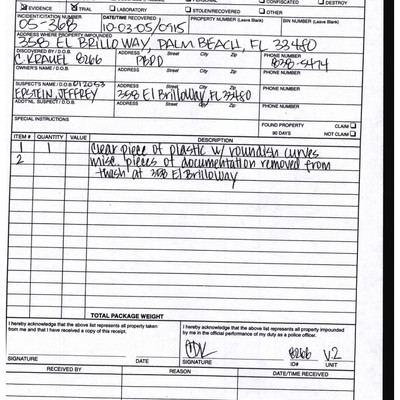 EVIDENCE TRIAL LABORATORY STOLEN/RECOVERED CONFISCATED OTHER DESTROY
INCIDENT/CITATION NUMBER DATE/TIME RECOVERED PROPERTY NUMBER (Leave Blank) BIN NUMBER (Leave Blank)
05-368 10-03-05/0915
ADDRESS WHERE PROPERTY IMPOUNDED Street City Zip
358 EL BRILLO WAY, PALM BEACH, FL 33480
DISCOVERED BY / D.O.B. ADDRESS Street City Zip PHONE NUMBER
8266 PBPD 838-5474
OWNER'S NAME / D.O.B. ADDRESS Street City Zip PHONE NUMBER
SUSPECT'S NAME / D.O.B. 012053 ADDRESS Street City Zip PHONE NUMBER
EPSTEIN, JEFFREY 358 El Brilloway, FL 33480
ADDT'NL SUSPECT / D.O.B. ADDRESS Street City Zip PHONE NUMBER
SPECIAL INSTRUCTIONS FOUND PROPERTY CLAIM
90 DAYS NOT CLAIM
ITEM # QUANTITY VALUE DESCRIPTION
1 1 clear piece of plastic w/ roundish curves
2 misc. pieces of documentation removed from
trash at 358 El Brilloway
TOTAL PACKAGE WEIGHT
I hereby acknowledge that the above list represents all property taken
from me and that I have received a copy of this receipt.
I hereby acknowledge that the above list represents all property impounded
by me in the official performance of my duty as a police officer.
8266 V.2
SIGNATURE DATE SIGNATURE ID# UNIT
RECEIVED BY REASON DATE/TIME RECEIVED